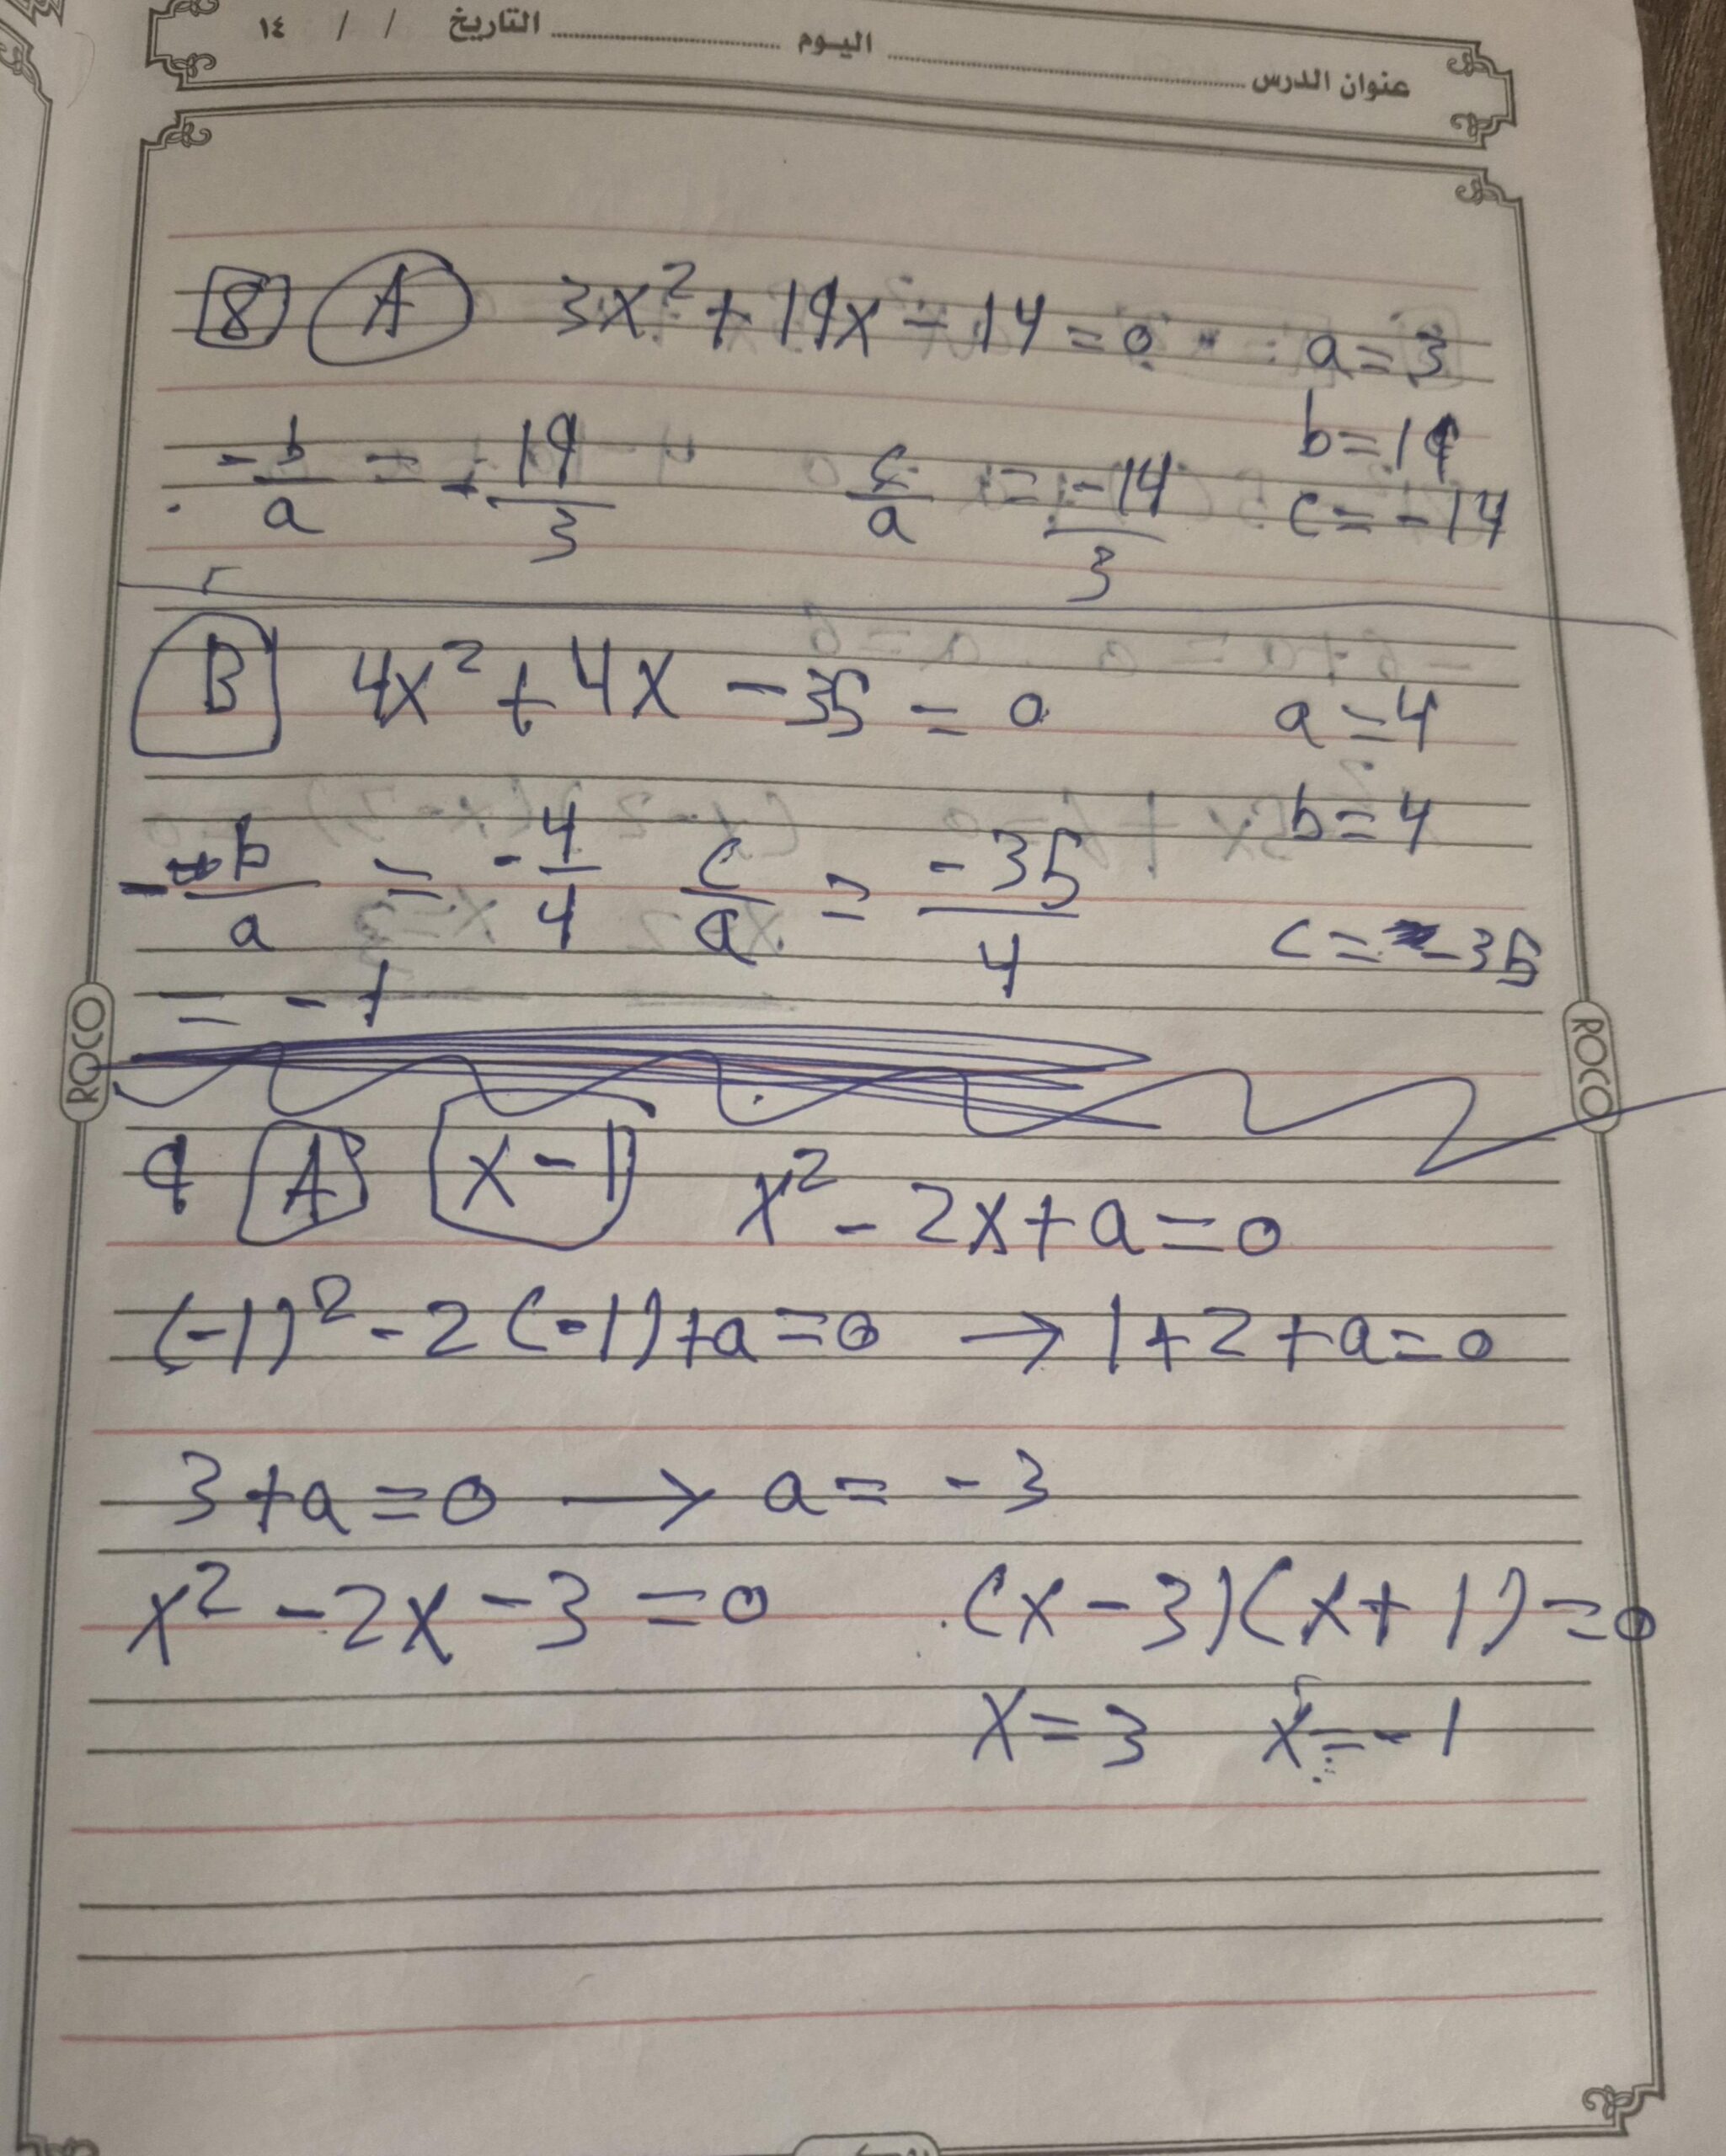 عنوان الدرس ........ اليوم ........ التاريخ / / ١٤
8 A 3x² + 19x - 14 = 0 a = 3
b = 19
-b/a = -19/3 c/a = -14/3 c = -14
B 4x² + 4x - 35 = 0 a = 4
b = 4
-b/a = -4/4 c/a = -35/4 c = -35
= -1
ROCO
ROCO
9 A x - 1 x² - 2x + a = 0
(-1)² - 2(-1) + a = 0 → 1 + 2 + a = 0
3 + a = 0 → a = -3
x² - 2x - 3 = 0 (x - 3)(x + 1) = 0
x = 3 x = -1